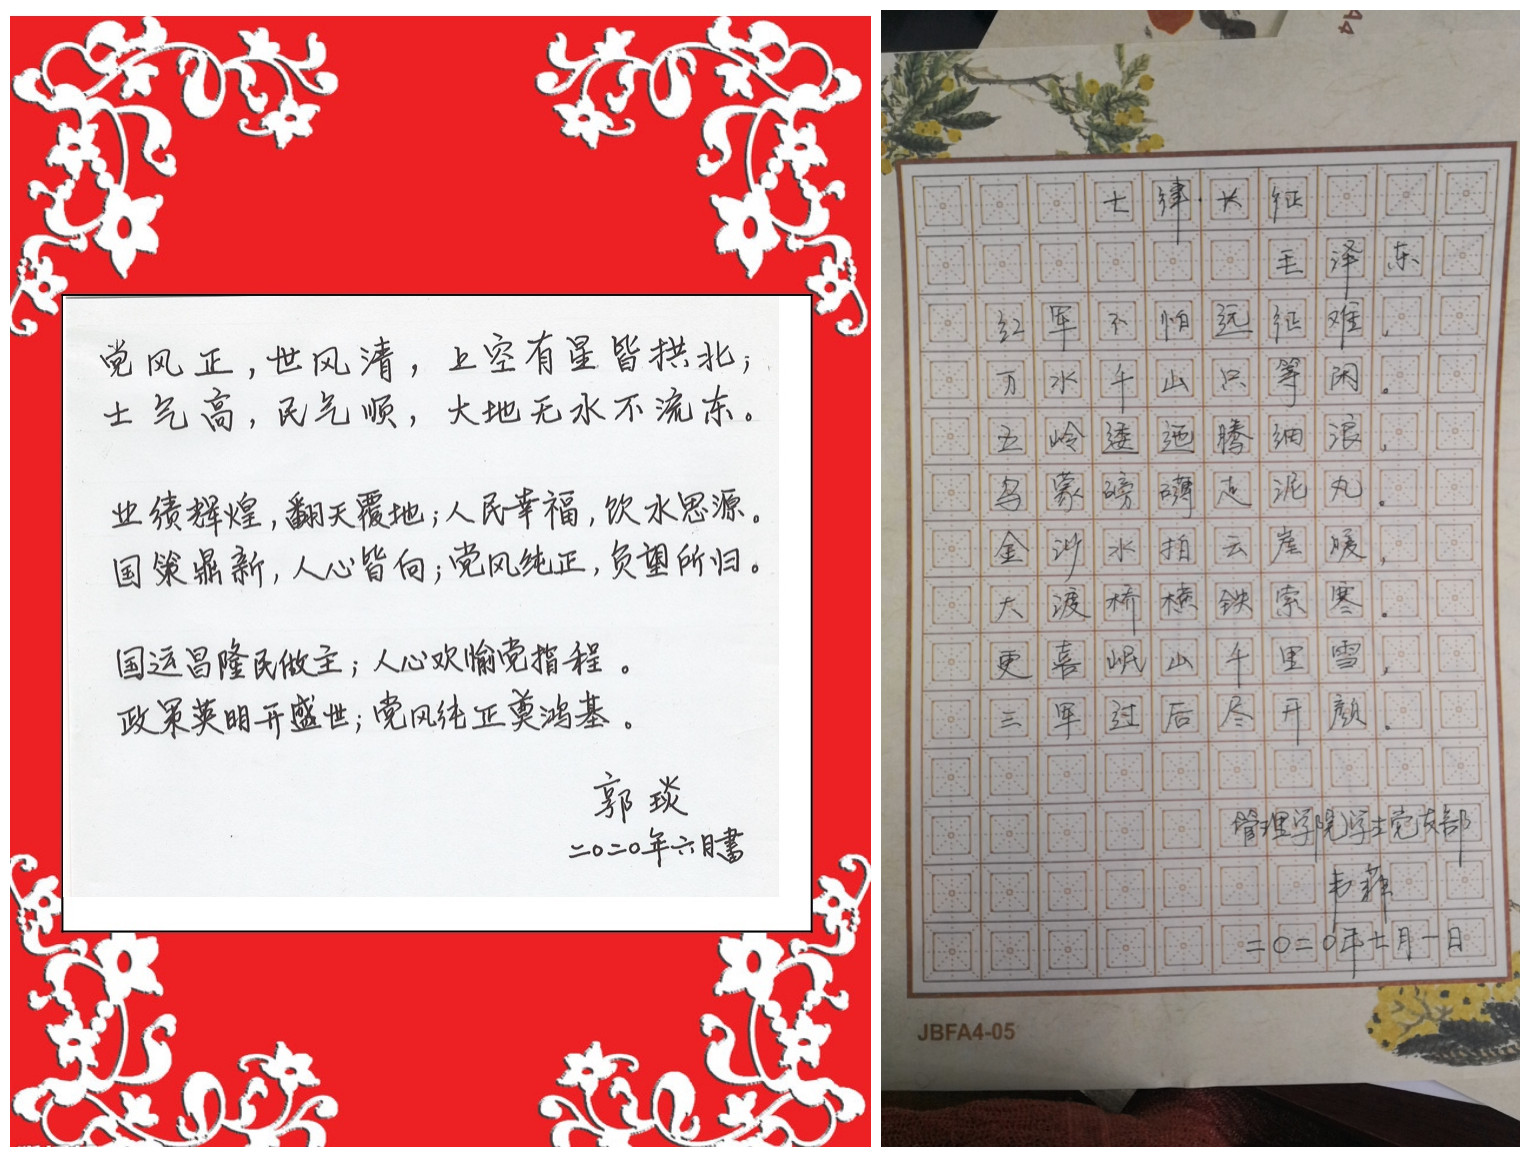 党风正，世风清，上空有星皆拱北；
士气高，民气顺，大地无水不流东。
业绩辉煌，翻天覆地；人民幸福，饮水思源。
国策鼎新，人心皆向；党风纯正，负望所归。
国运昌隆民做主；人心欢愉党指程。
政策英明开盛世；党风纯正奠鸿基。
郭琰
二〇二〇年六月書
A4
七律·长征
毛泽东
红军不怕远征难，
万水千山只等闲。
五岭逶迤腾细浪，
乌蒙磅礴走泥丸。
金沙水拍云崖暖，
大渡桥横铁索寒。
更喜岷山千里雪，
三军过后尽开颜。
管理学院学士党支部
韦菲
二〇二〇年七月一日
JBFA4-05